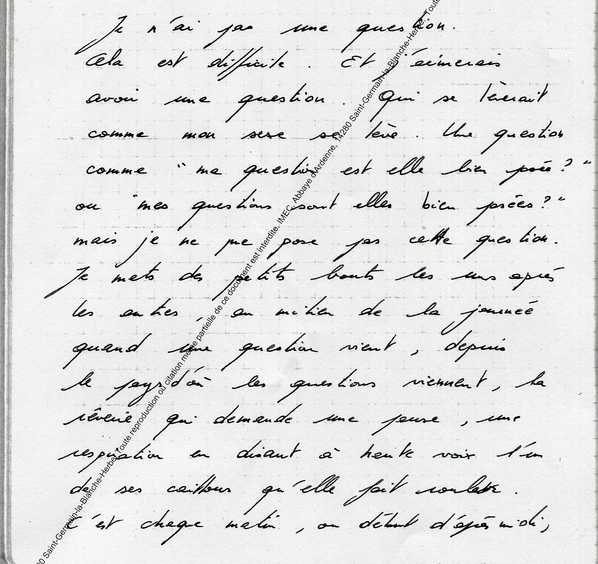 Je n'ai pas une question.
Cela est difficile. Et j'aimerais
avoir une question. Qui se lèverait
comme mon sexe se lève. Une question
comme "ma question est elle bien posée?"
ou "mes questions sont elles bien posées?"
mais je ne me pose pas cette question.
Je mets des petits bouts les uns après
les autres, au milieu de la journée
quand une question vient, depuis
le pays d'où les questions viennent, la
rêverie qui demande une pause, une
respiration en disant à haute voix l'un
de ses cailloux qu'elle fait rouler.
C'est chaque matin, ou début d'après midi,
80 Saint-Germain-la-Blanche-Herbe. Toute reproduction ou citation même partielle de ce document est interdite. IMEC, Abbaye d'Ardenne, 14280 Saint-Germain-la-Blanche-Herbe. Toute